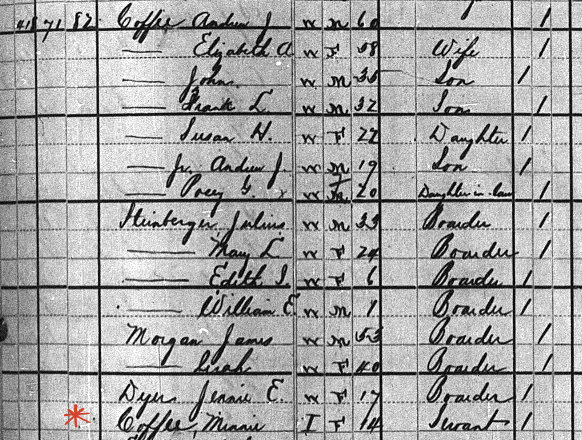 418 71 82 Coffee Andrew J W M 60 1
—— Elizabeth A W F 58 Wife 1
—— John W M 35 Son 1
—— Frank L W M 32 Son 1
—— Susan H. W F 22 Daughter 1
—— Jr. Andrew J. W M 19 Son 1
—— W F 20 Daughter in law 1
Steinberger, Julius W M 33 Boarder 1
—— Mary L W F 24 Boarder 1
—— Edith I. W F 6 Boarder 1
—— William E. W M 1 Boarder 1
Morgan James W M 53 Boarder 1
—— Sarah W F 40 Boarder 1
Dyer Jennie E. W F 17 Boarder 1
Coffee, Minnie I F 14 Servant 1